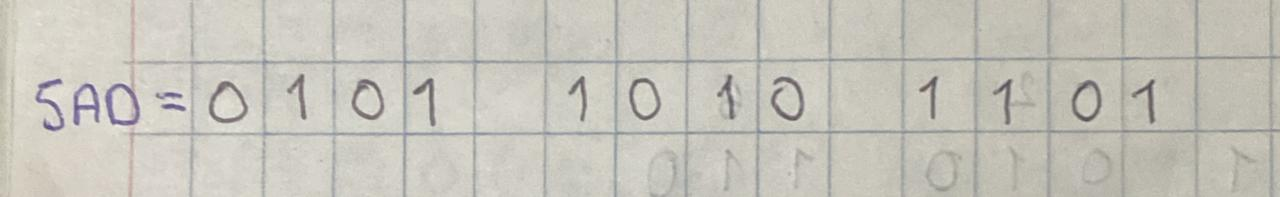 5AD = 0101 1010 1101